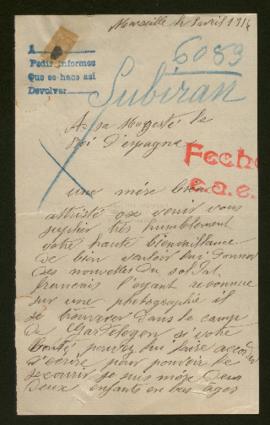 Marseille le 1 avril 1916
A
Pedir informes
Que se hace así
Devolver
6089
Subiran
A sa Magesté le
Roi d'espagne
Fecho
e.a.e.
une mère bien
attristé ose venir vous
suplier très humblement
votre haute bienveillance
de bien vouloir lui donner
des nouvelles du soldat
français l'ayant reconnue
sur une photographie il
se trouverer dans le camp
de Gardelegen si votre
bonté pouvez lui faire
d'écrire pour pouvoir le
secourir je suis mère
deux enfants en bas ages